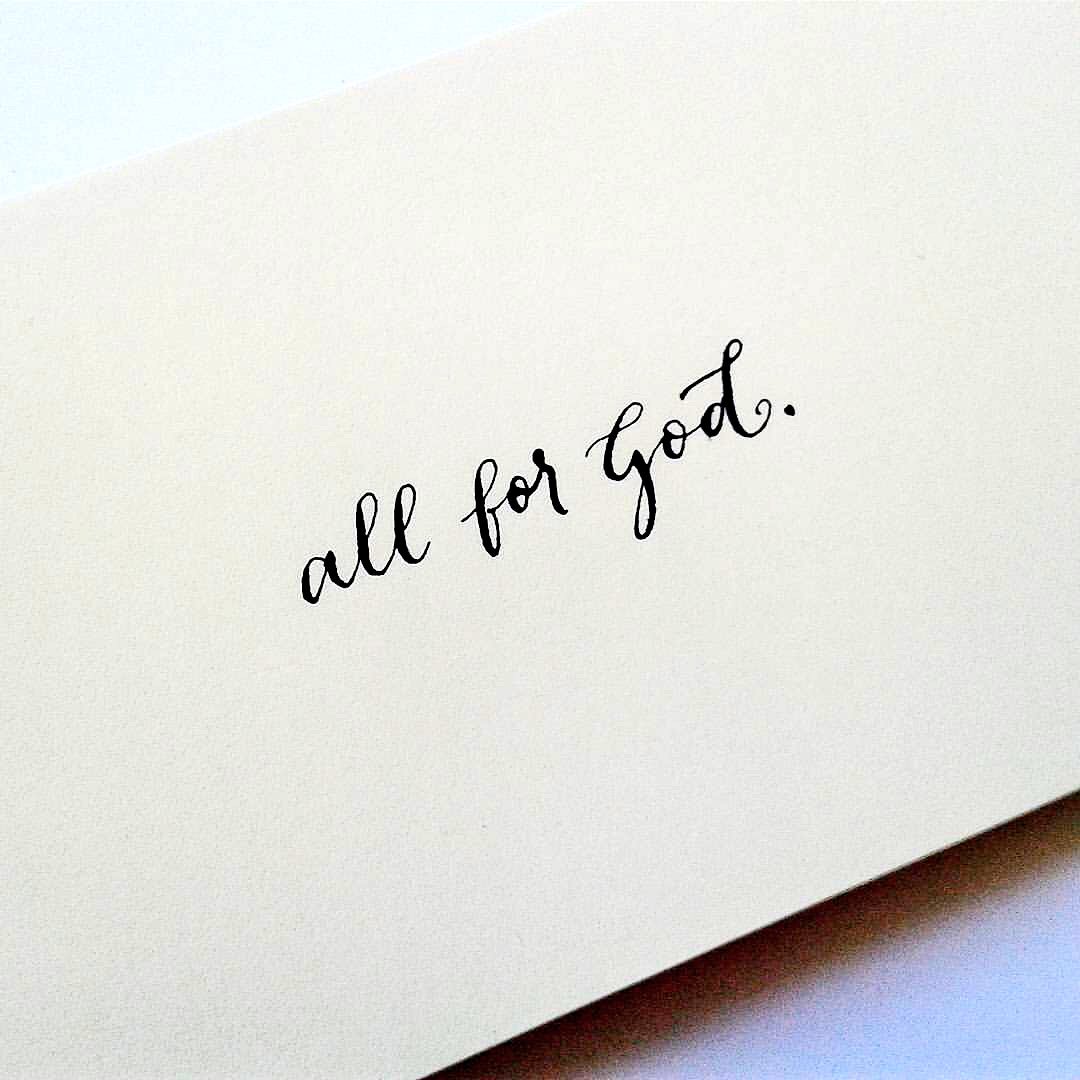 all for God.